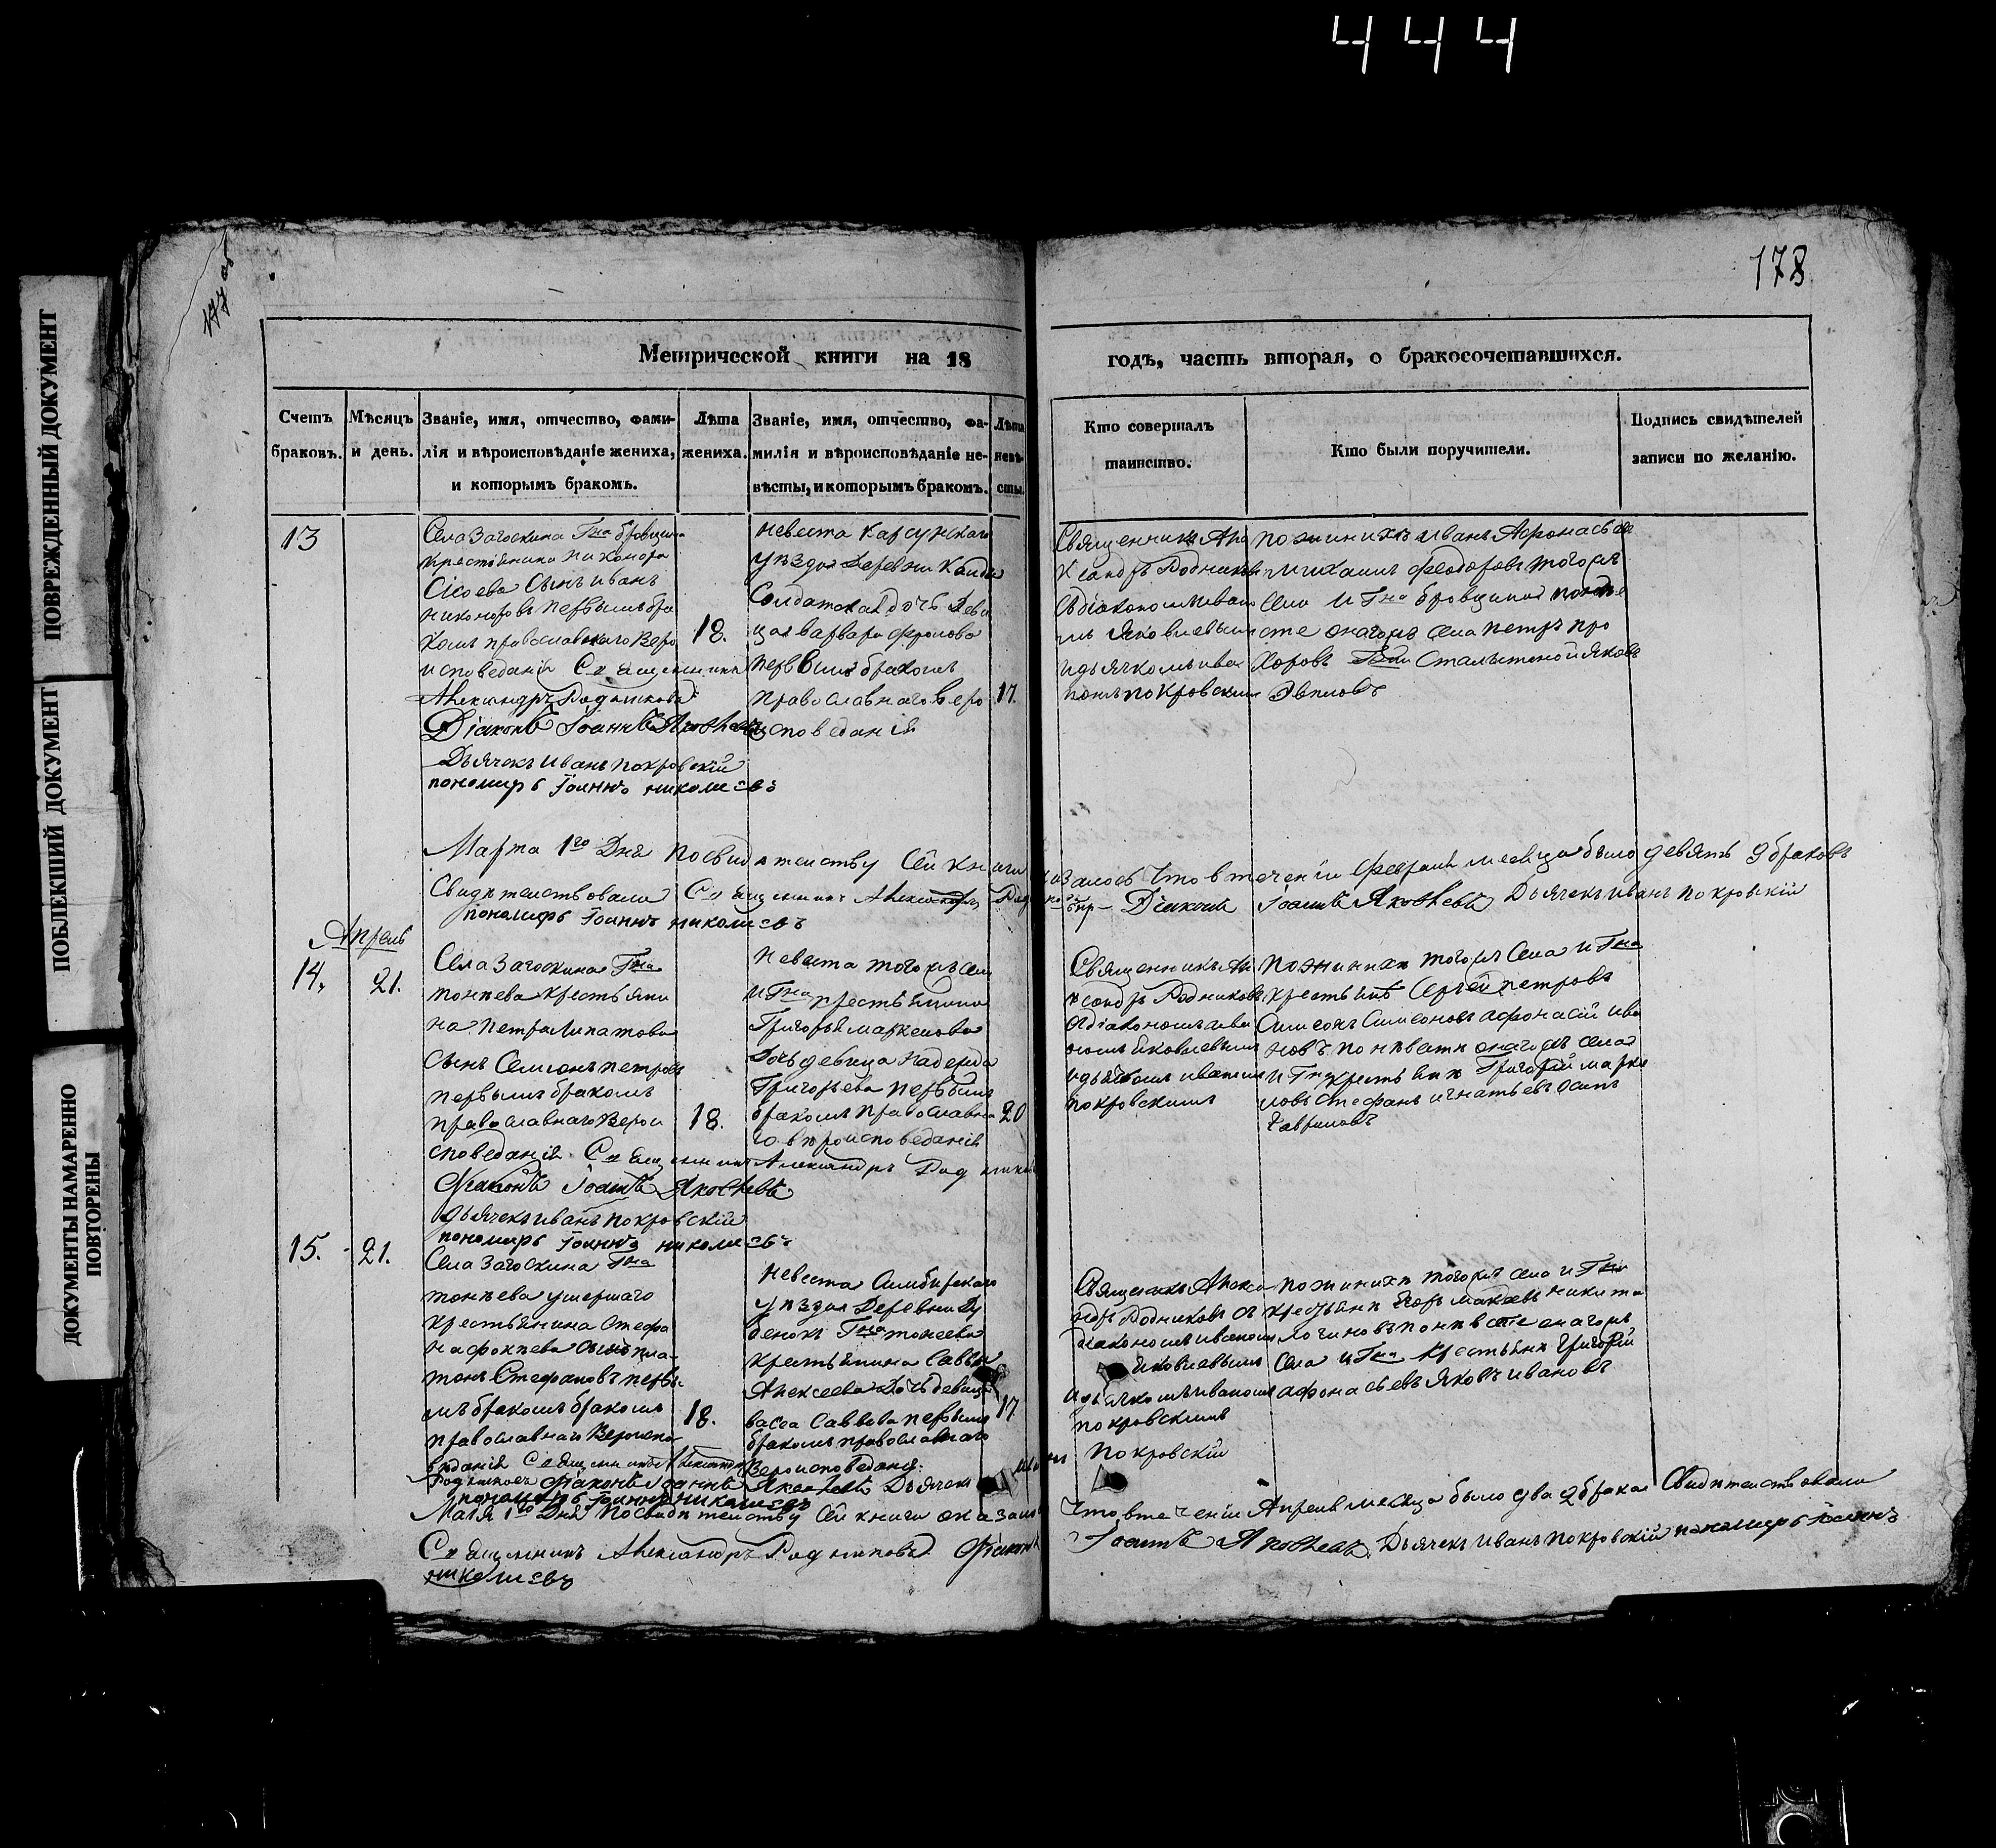 444
ПОВРЕЖДЕННЫЙ ДОКУМЕНТ
ПОБЛЕКШИЙ ДОКУМЕНТ
ДОКУМЕНТЫ НАМАРЕННО
ПОВТОРЕНЫ
178
Метрической книги на 18
годъ, часть вторая, о бракосочетавшихся.
Счетъ браковъ.
Мѣсяцъ и день.
Званіе, имя, отчество, фами-
лія и вѣроисповѣданіе жениха,
и которымъ бракомъ.
Лѣта жениха.
Званіе, имя, отчество, фа-
милія и вѣроисповѣданіе не-
вѣсты, и которымъ бракомъ.
Лѣта невѣ-
сты.
Кто совершалъ
таинство.
Кто были поручители.
Подпись свидѣтелей
записи по желанію.
13
Села Загоскина Гна
крестьянина Никонора
Сісоева Сынъ Иванъ
Никоноровъ первымъ бра
комъ православнаго Веро
исповеданія Священникъ
Александръ Родниковъ
Діаконъ Іоаннъ Яковлевъ
Дьячекъ Иванъ Покровскій
пономарь Іоаннъ
18.
невеста Карсунскаго
уѣзда Деревни
Солдатская дочь Деви
ца Варвара Фролова
первымъ бракомъ
православнаго Веро
исповеданія
17
Священникъ Але
ксандръ Родниковъ
съ діакономъ Ивано
мъ Яковлевымъ
и дьячкомъ Ива
номъ Покровскимъ
по женихѣ Иванъ Афонасьев
Михаилъ Феодоровъ тогожъ
села и Гна
оногожъ села Петръ Про
хоровъ Яковъ
Марта 1го Дня по свидѣтельству Сей книги оказалось Что в теченіи Февраля месяца было девять 9 браковъ
Свидѣтельствовали Священникъ Александръ Родниковъ Діаконъ Іоаннъ Яковлевъ Дьячекъ Иванъ Покровскій
пономарь Іоаннъ
Апрель
14.
21.
Села Загоскина Гна
Тонѣева крестьяни
на Петра Ипатова
Сынъ Семионъ Петровъ
первымъ бракомъ
православнаго Верои
споведанія Священникъ Александръ Родников
Діаконъ Іоаннъ Яковлевъ
Дьячекъ Иванъ Покровскій
пономарь Іоаннъ
18.
Невеста тогожъ села
и Гна крестьянина
Григорья Маркелова
дочь девица Надежда
Григорьева первымъ
бракомъ православна
го вѣроисповеданія
20
Священникъ Але
ксандръ Родниковъ
съ діакономъ Ива
номъ Яковлевымъ
и дьячкомъ Иваномъ
Покровскимъ
по женихѣ тогожъ Села и Гна
крестьянѣ Сергей Петровъ
Симеонъ Симеоновъ Афонасій Ива
новъ по невѣстѣ оногожъ села
и Гна крестьянѣ Григорій Марке
ловъ Стефанъ Игнатьевъ Осипъ
Гавриловъ
15.
21.
Села Загоскина Гна
Тонѣева умершаго
крестьянина Стефа
на Фокѣева сынъ Пла
тонъ Стефановъ первы
мъ бракомъ бракомъ
православнаго Вероиспо
вѣданія Священникъ Александръ
Родниковъ Діаконъ Іоаннъ Яковлевъ Дьячекъ Иванъ Покровскій
пономарь Іоаннъ
18.
Невеста Симбирскаго
уѣзда Деревни Ду
бенокъ Гна Тонеева
крестьянина Саввы
Алексеева дочь девица
Васса Саввева первымъ
бракомъ православнаго
Вероисповеданія
17
Священикъ Алекса
ндръ Родниковъ съ
діакономъ Иваномъ
Яковлевымъ
и дьячкомъ Иваномъ
Покровскимъ
по женихѣ тогожъ села и Гна
крестьянѣ Егоръ Никита
Логиновъ по невѣсте оногожъ
села и Гна крестьянѣ Григорій
Афонасьевъ Яковъ Ивановъ
Маія 1го Дня По свидѣтельству Сей книги оказалось Что в теченіи Апреля месяца было два 2 брака Свидѣтельствовали
Священникъ Александръ Родниковъ Діаконъ Іоаннъ Яковлевъ Дьячекъ Иванъ Покровскій пономарь Іоаннъ